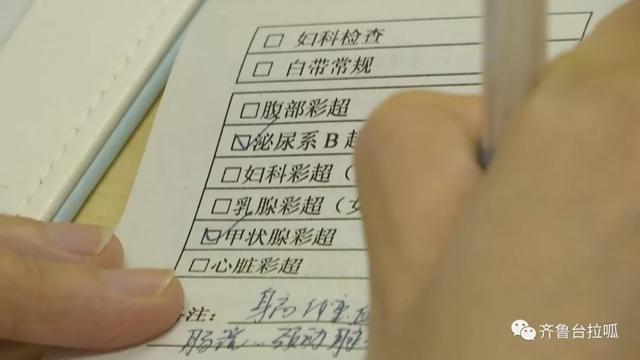 □ 妇科检查
□ 白带常规
□腹部彩超
☑泌尿系B超
□妇科彩超（
□乳腺彩超（女
☑甲状腺彩超
□心脏彩超
备注： 身高
肠镜
齐鲁台拉呱